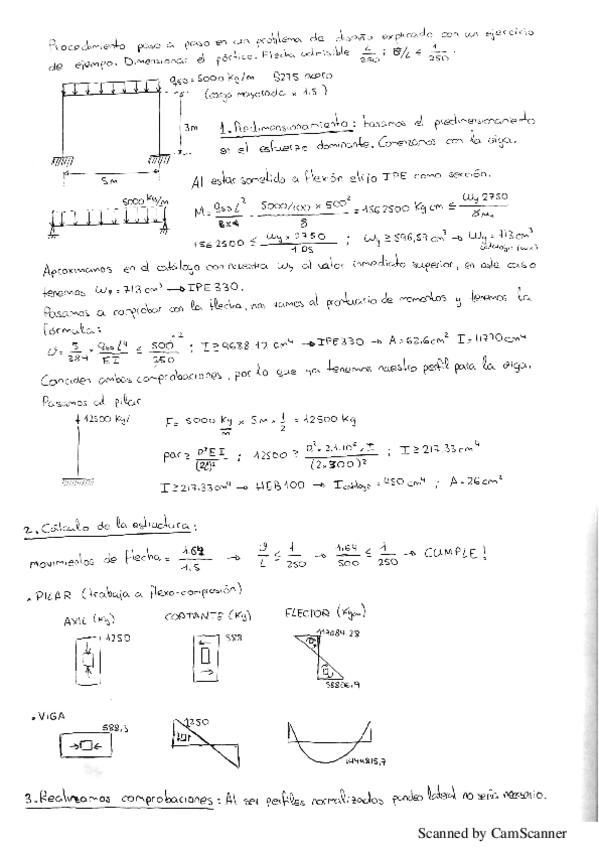 Procedimiento paso a paso en un problema de diseño explicado con un ejercicio
de ejemplo. Dimensionar el pórtico. Flecha admisible L/250 ; θ/L ≤ 1/250 .
q = 5000 Kg/m S275 acero
(carga mayorada x 1.5)
3m
5m
1. Predimensionamiento: basamos el predimensionamiento
en el esfuerzo dominante. Comenzamos con la viga.
Al estar sometido a flexión elijo IPE como sección.
5000 Kg/m
= 1562500 Kg cm ≤ Wy 2750
1562500 ≤ Wy x 2750 / 1.05 ; Wy ≥ 596,59 cm³ → Wy = 713 cm³
Aproximamos en el catálogo con nuestra Wy al valor inmediato superior, en este caso
tenemos W = 713 cm³ → IPE 330.
Pasamos a comprobar con la flecha, nos vamos al prontuario de momentos y tenemos la
fórmula:
≤ 500/250 ; I ≥ 9688.17 cm⁴ → IPE 330 → A = 62.6 cm² I = 11770 cm⁴
Coinciden ambas comprobaciones, por lo que ya tenemos nuestro perfil para la viga.
Pasamos al pilar
12500 Kg/
F = 5000 Kg/m x 5m x 1/2 = 12500 Kg
I ≥ 217.33 cm⁴
I ≥ 217.33 cm⁴ → HEB 100 → I catálogo = 450 cm⁴ ; A = 26 cm²
2. Cálculo de la estructura:
movimientos de flecha = 1.64/1.5 → θ/L ≤ 1/250 → 1.64/500 ≤ 1/250 → CUMPLE!
. PILAR (trabaja a flexo-compresión)
AXIL (Kg) CORTANTE (Kg) FLECTOR (Kgcm)
1250 588 117084.28
58806.9
. VIGA
588.3 1250
3. Realizamos comprobaciones: Al ser perfiles normalizados pandeo lateral no sería necesario.
Scanned by CamScanner